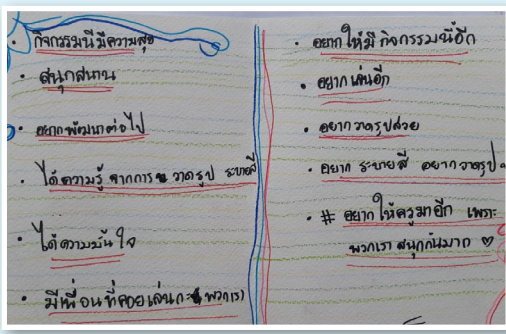 กิจกรรมนี้มีความสุข
สนุกสนาน
อยากพัฒนาต่อไป
ได้ความรู้ จากการ วาดรูป ระบายสี
ได้ความมั่นใจ
มีเพื่อนที่คอยเล่นกะ พวกเรา
อยากให้มีกิจกรรมนี้อีก
อยากเล่นอีก
อยากวาดรูปสวย
อยาก ระบายสี อยากวาดรูป
# อยากให้ครูมาอีก เพราะ
พวกเราสนุกกันมาก ♡